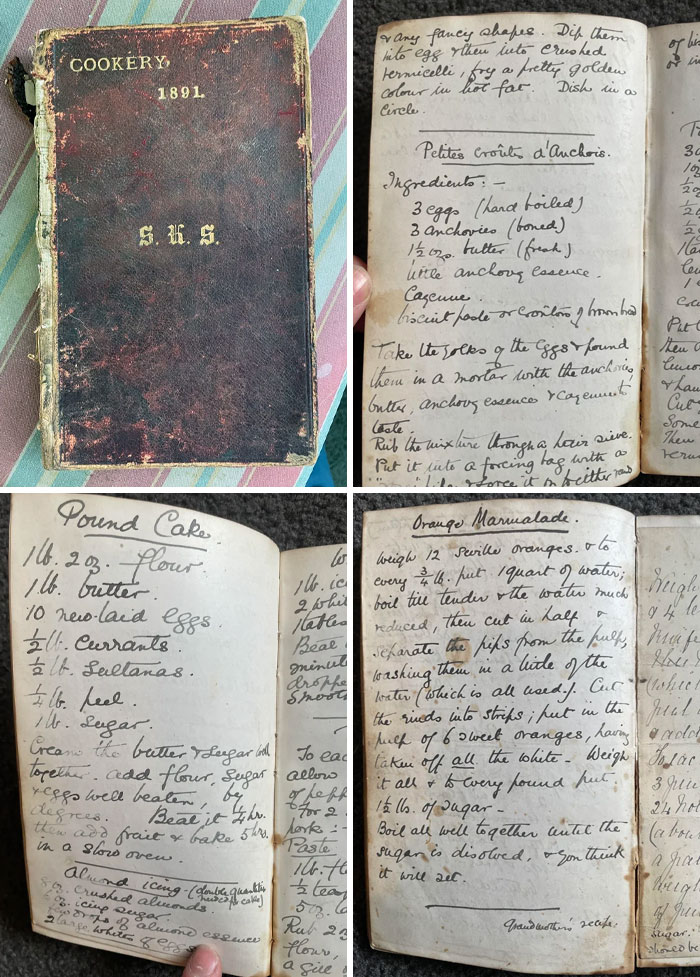 COOKERY,
1891.
S. K. S.
& any fancy shapes. Dip them
into egg & then into crushed
vermicelli, fry a pretty golden
colour in hot fat. Dish in a
circle.
Petites Croûtes d'Anchois.
Ingredients: —
3 eggs (hard boiled)
3 anchovies (boned)
1½ oz. butter (fresh)
little anchovy essence.
Cayenne.
biscuit paste or croûtons of brown bread
Take the yolks of the eggs & pound
them in a mortar with the anchovies,
butter, anchovy essence & cayenne to
taste.
Rub the mixture through a hair sieve.
Put it into a forcing bag with a
& force it on to either
of
or in
Put
then
Cut
Some
Then
Pound Cake.
1 lb. 2 oz. flour.
1 lb. butter.
10 new-laid eggs.
½ lb. Currants.
½ lb. Sultanas.
¼ lb. peel.
1 lb. Sugar.
Cream the butter & sugar well
together. add flour, sugar
& eggs well beaten, by
degrees. Beat it ¼ hr.
then add fruit & bake 5 hrs.
in a slow oven.
Almond icing - (double quantities
for cake)
oz. crushed almonds
oz. icing sugar.
drops of almond essence
2 large whites of eggs
1 lb.
2
Beat
To each
allow
of
for 2
pork: -
Paste
1 lb.
½
5 oz.
Rub 2
flour,
a gill
Orange Marmalade.
Weigh 12 Seville oranges. & to
every ¾ lb. put 1 quart of water;
boil till tender & the water much
reduced, then cut in half &
separate the pips from the pulp,
washing them in a little of the
water (which is all used.). Cut
the rinds into strips; put in the
pulp of 6 sweet oranges, having
taken off all the white. Weigh
it all & to every pound put
1½ lbs. of sugar —
Boil all well together until the
sugar is disolved, & you think
it will set.
Grandmother's recipe.
Weigh
& 4
(which
add
3
24
(about
a
Weigh
of
sugar.
should be